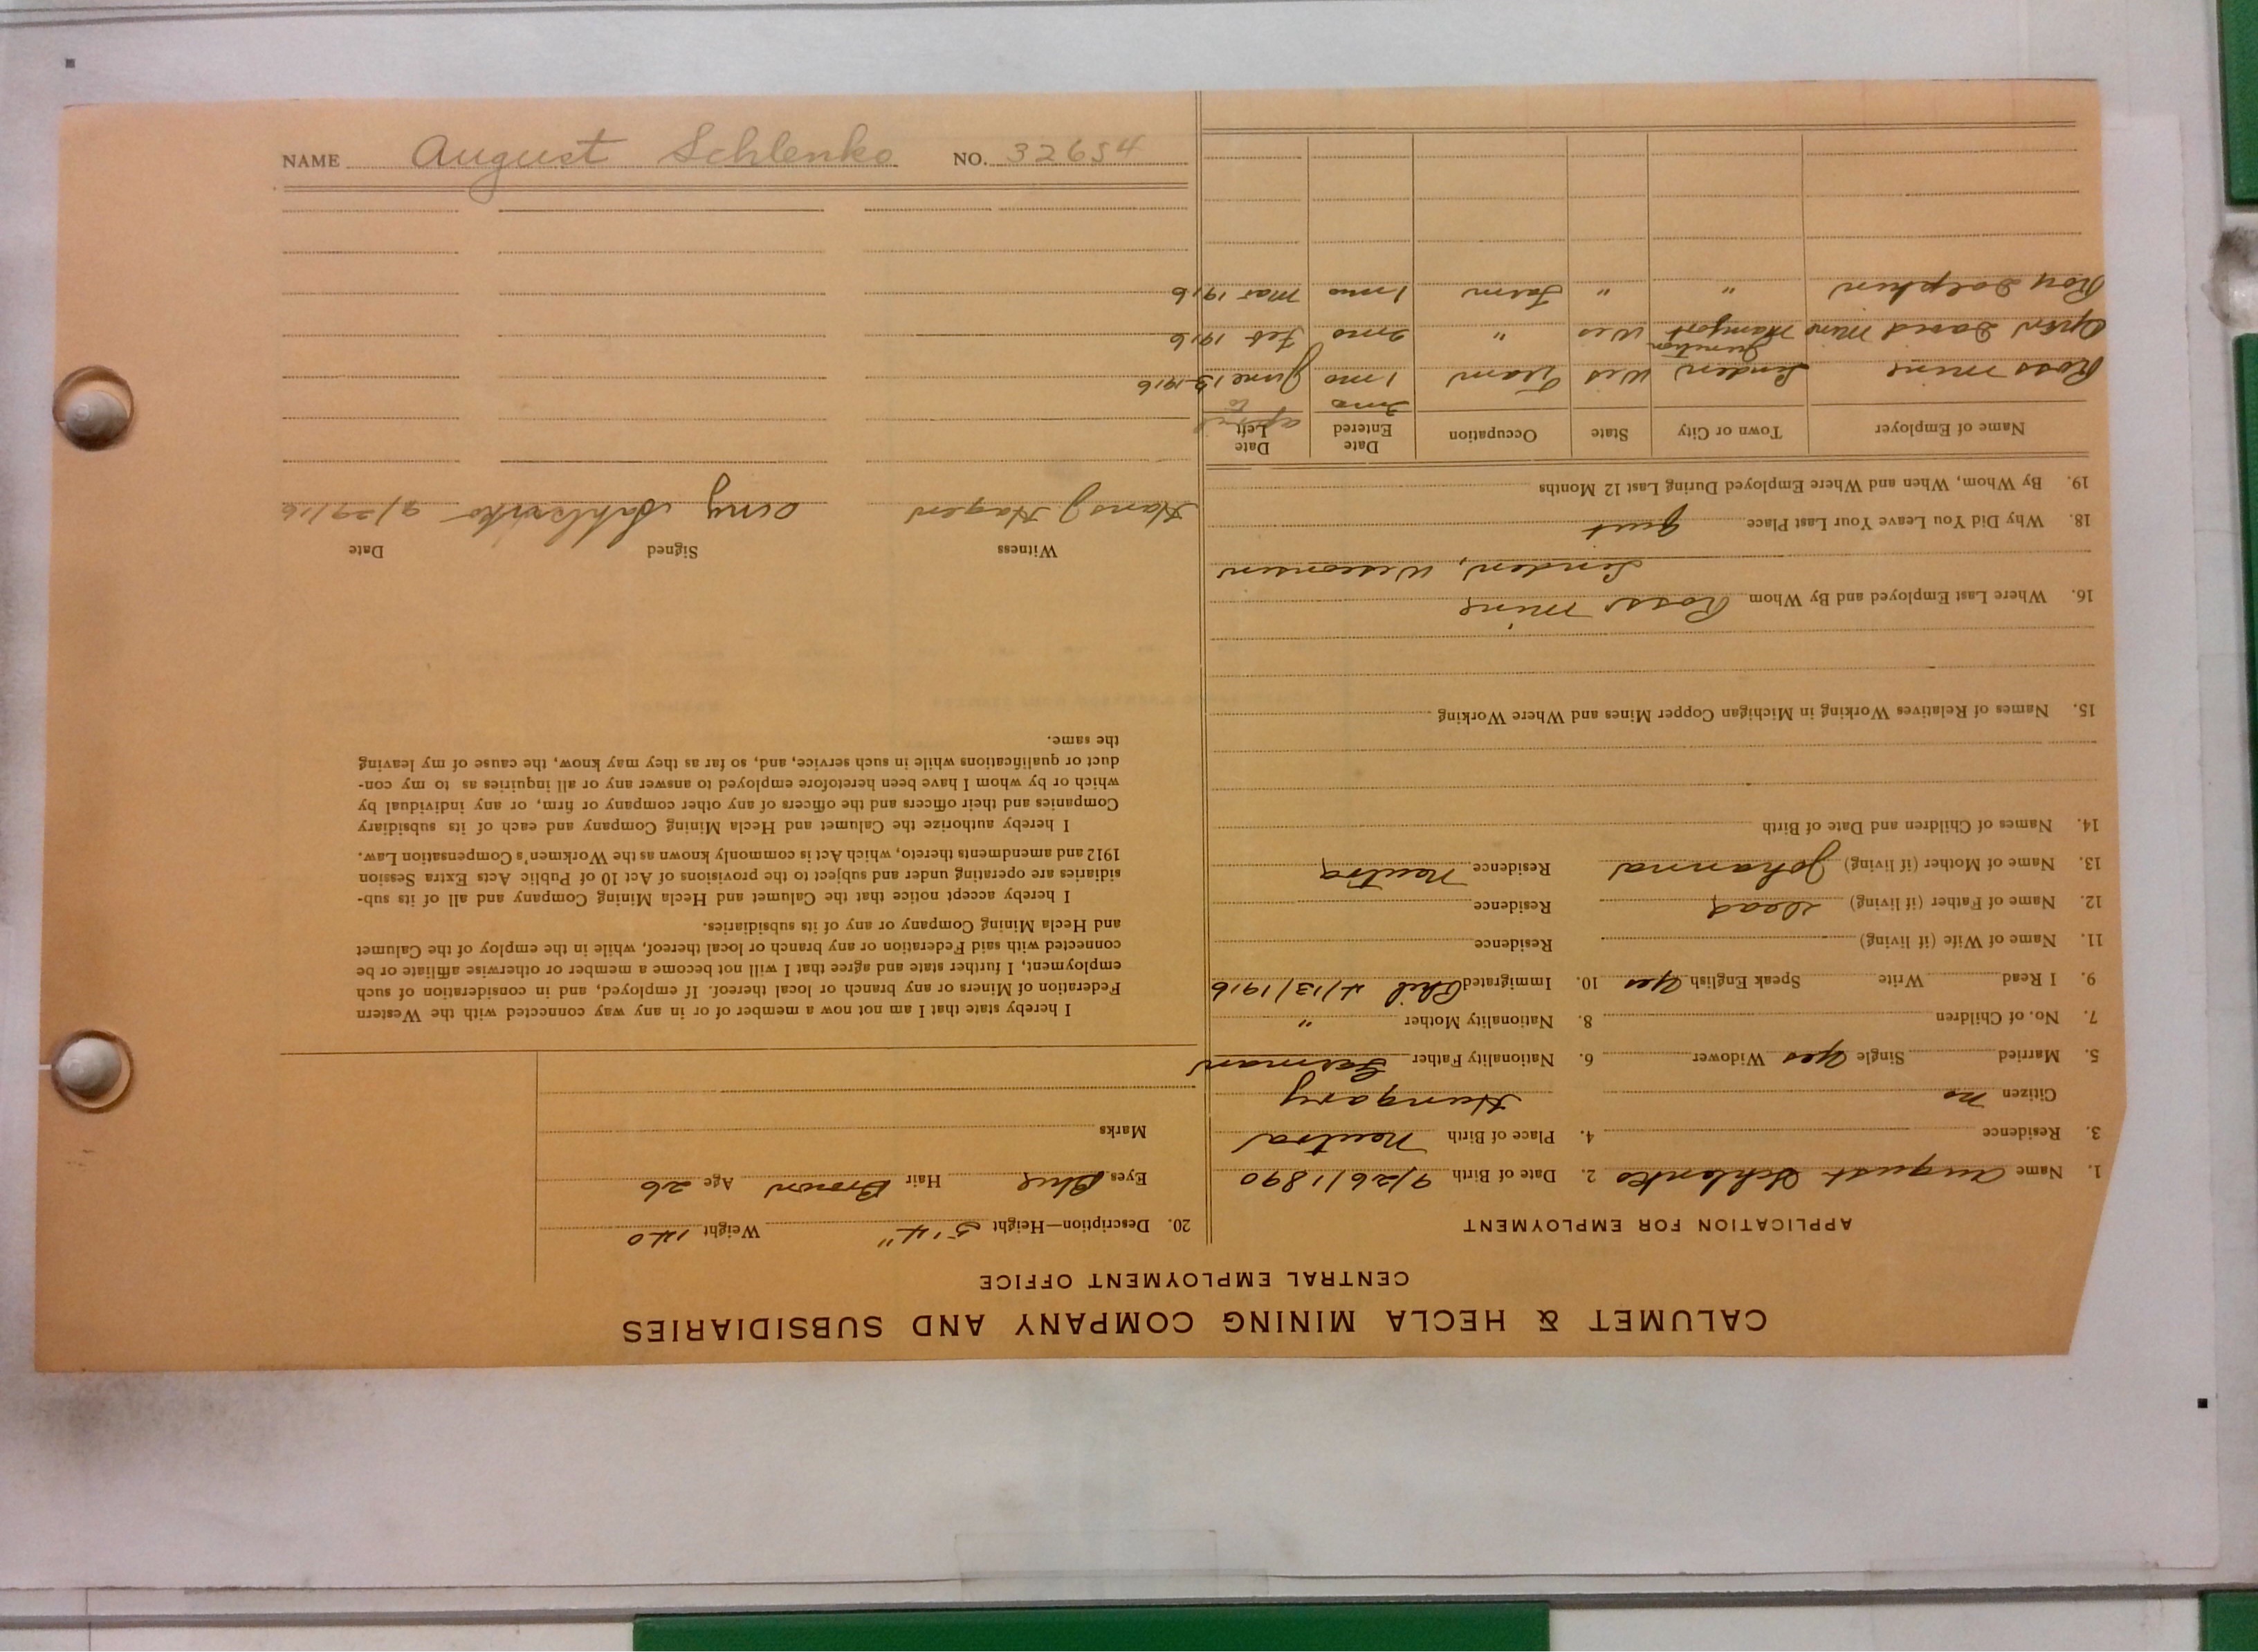 NAME August Schlenko NO. 32654
CALUMET & HECLA MINING COMPANY AND SUBSIDIARIES
CENTRAL EMPLOYMENT OFFICE
APPLICATION FOR EMPLOYMENT
1. Name August Schlenko 2. Date of Birth 9/26/1890
3. Residence 4. Place of Birth Neutra
Citizen no Hungary
5. Married Single yes Widower 6. Nationality Father German
7. No. of Children 8. Nationality Mother "
9. I Read Write Speak English yes 10. Immigrated Phil 4/13/1916
11. Name of Wife (if living) Residence
12. Name of Father (if living) dead Residence
13. Name of Mother (if living) Johanna Residence Neutra
14. Names of Children and Date of Birth
15. Names of Relatives Working in Michigan Copper Mines and Where Working
16. Where Last Employed and By Whom Ross Mine
Linden, Wisconsin
18. Why Did You Leave Your Last Place quit
19. By Whom, When and Where Employed During Last 12 Months
Name of Employer Town or City State Occupation Date Entered Date Left
3mo to
Ross Mine Linden Wis Team 1 mo June 13-1916
Junction
David Mine Wis " 2mo Feb 1916
Roy Dolphin " " Farm 1 mo Mar 1916
20. Description—Height 5'4" Weight 140
Eyes Blue Hair Brown Age 26
Marks
I hereby state that I am not now a member of or in any way connected with the Western
Federation of Miners or any branch or local thereof. If employed, and in consideration of such
employment, I further state and agree that I will not become a member or otherwise affiliate or be
connected with said Federation or any branch or local thereof, while in the employ of the Calumet
and Hecla Mining Company or any of its subsidiaries.
I hereby accept notice that the Calumet and Hecla Mining Company and all of its sub-
sidiaries are operating under and subject to the provisions of Act 10 of Public Acts Extra Session
1912 and amendments thereto, which Act is commonly known as the Workmen's Compensation Law.
I hereby authorize the Calumet and Hecla Mining Company and each of its subsidiary
Companies and their officers and the officers of any other company or firm, or any individual by
which or by whom I have been heretofore employed to answer any or all inquiries as to my con-
duct or qualifications while in such service, and, so far as they may know, the cause of my leaving
the same.
Witness Signed Date
Hans J. Hagen 9/29/16